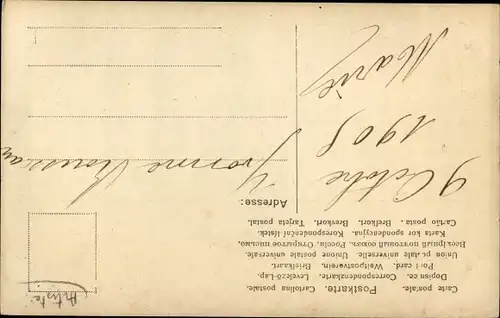 Carte postale. Postkarte. Cartolina postale.
Dopisnice. Correspondenzkarte. Levelező-Lap.
Post card. Weltpostverein. Briefkaart.
Union postale universelle. Unione postale universale.
Всемірный почтовый союзъ. Россія. Открытое письмо.
Karta korespondencyjna. Korespondenční lístek.
Cartão postal. Brefkort. Brevkort. Tarjeta postal.
Adresse:
Marie
9 Octobre 1905
Yvonne
Artiste